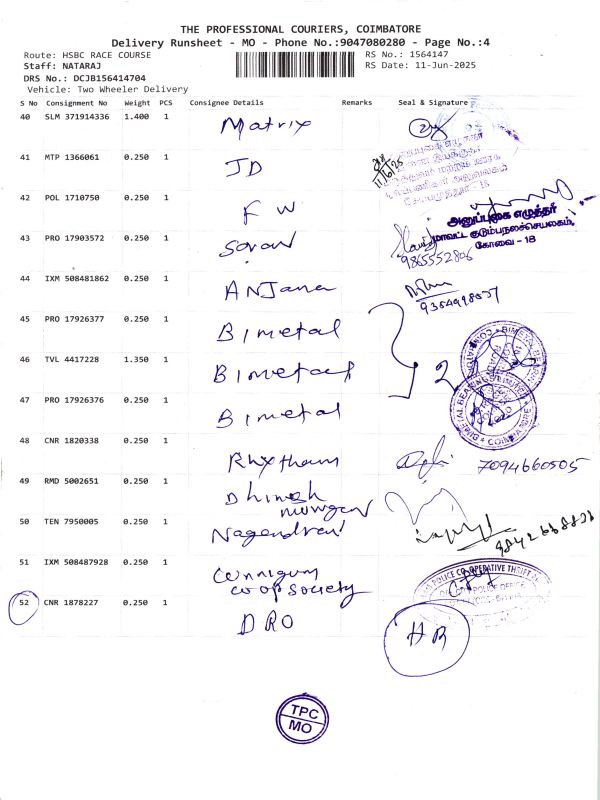 THE PROFESSIONAL COURIERS, COIMBATORE
Delivery Runsheet - MO - Phone No.:9047080280 - Page No.:4
Route: HSBC RACE COURSE
RS No.: 1564147
Staff: NATARAJ
RS Date: 11-Jun-2025
DRS No.: DCJB156414704
Vehicle: Two Wheeler Delivery
S No Consignment No Weight PCS Consignee Details Remarks Seal & Signature
40 SLM 371914336 1.400 1 Matrix
11/6/25
41 MTP 1366061 0.250 1 JD
42 POL 1710750 0.250 1 F W
அனுப்புகை எழுத்தர்
மாவட்ட குடும்பநலச்செயலகம்,
கோவை - 18
43 PRO 17903572 0.250 1
9865552806
44 IXM 508481862 0.250 1 ANJana
45 PRO 17926377 0.250 1 Bimetal
46 TVL 4417228 1.350 1 Bimetal 2
47 PRO 17926376 0.250 1 Bimetal
48 CNR 1820338 0.250 1 Rhytham 7094660505
49 RMD 5002651 0.250 1 Dhinesh
murugan
50 TEN 7950005 0.250 1 Nagendran
51 IXM 508487928 0.250 1
co op society
POLICE CO-OPERATIVE THRIFT
52 CNR 1878227 0.250 1 DRO
HR
TPC
MO